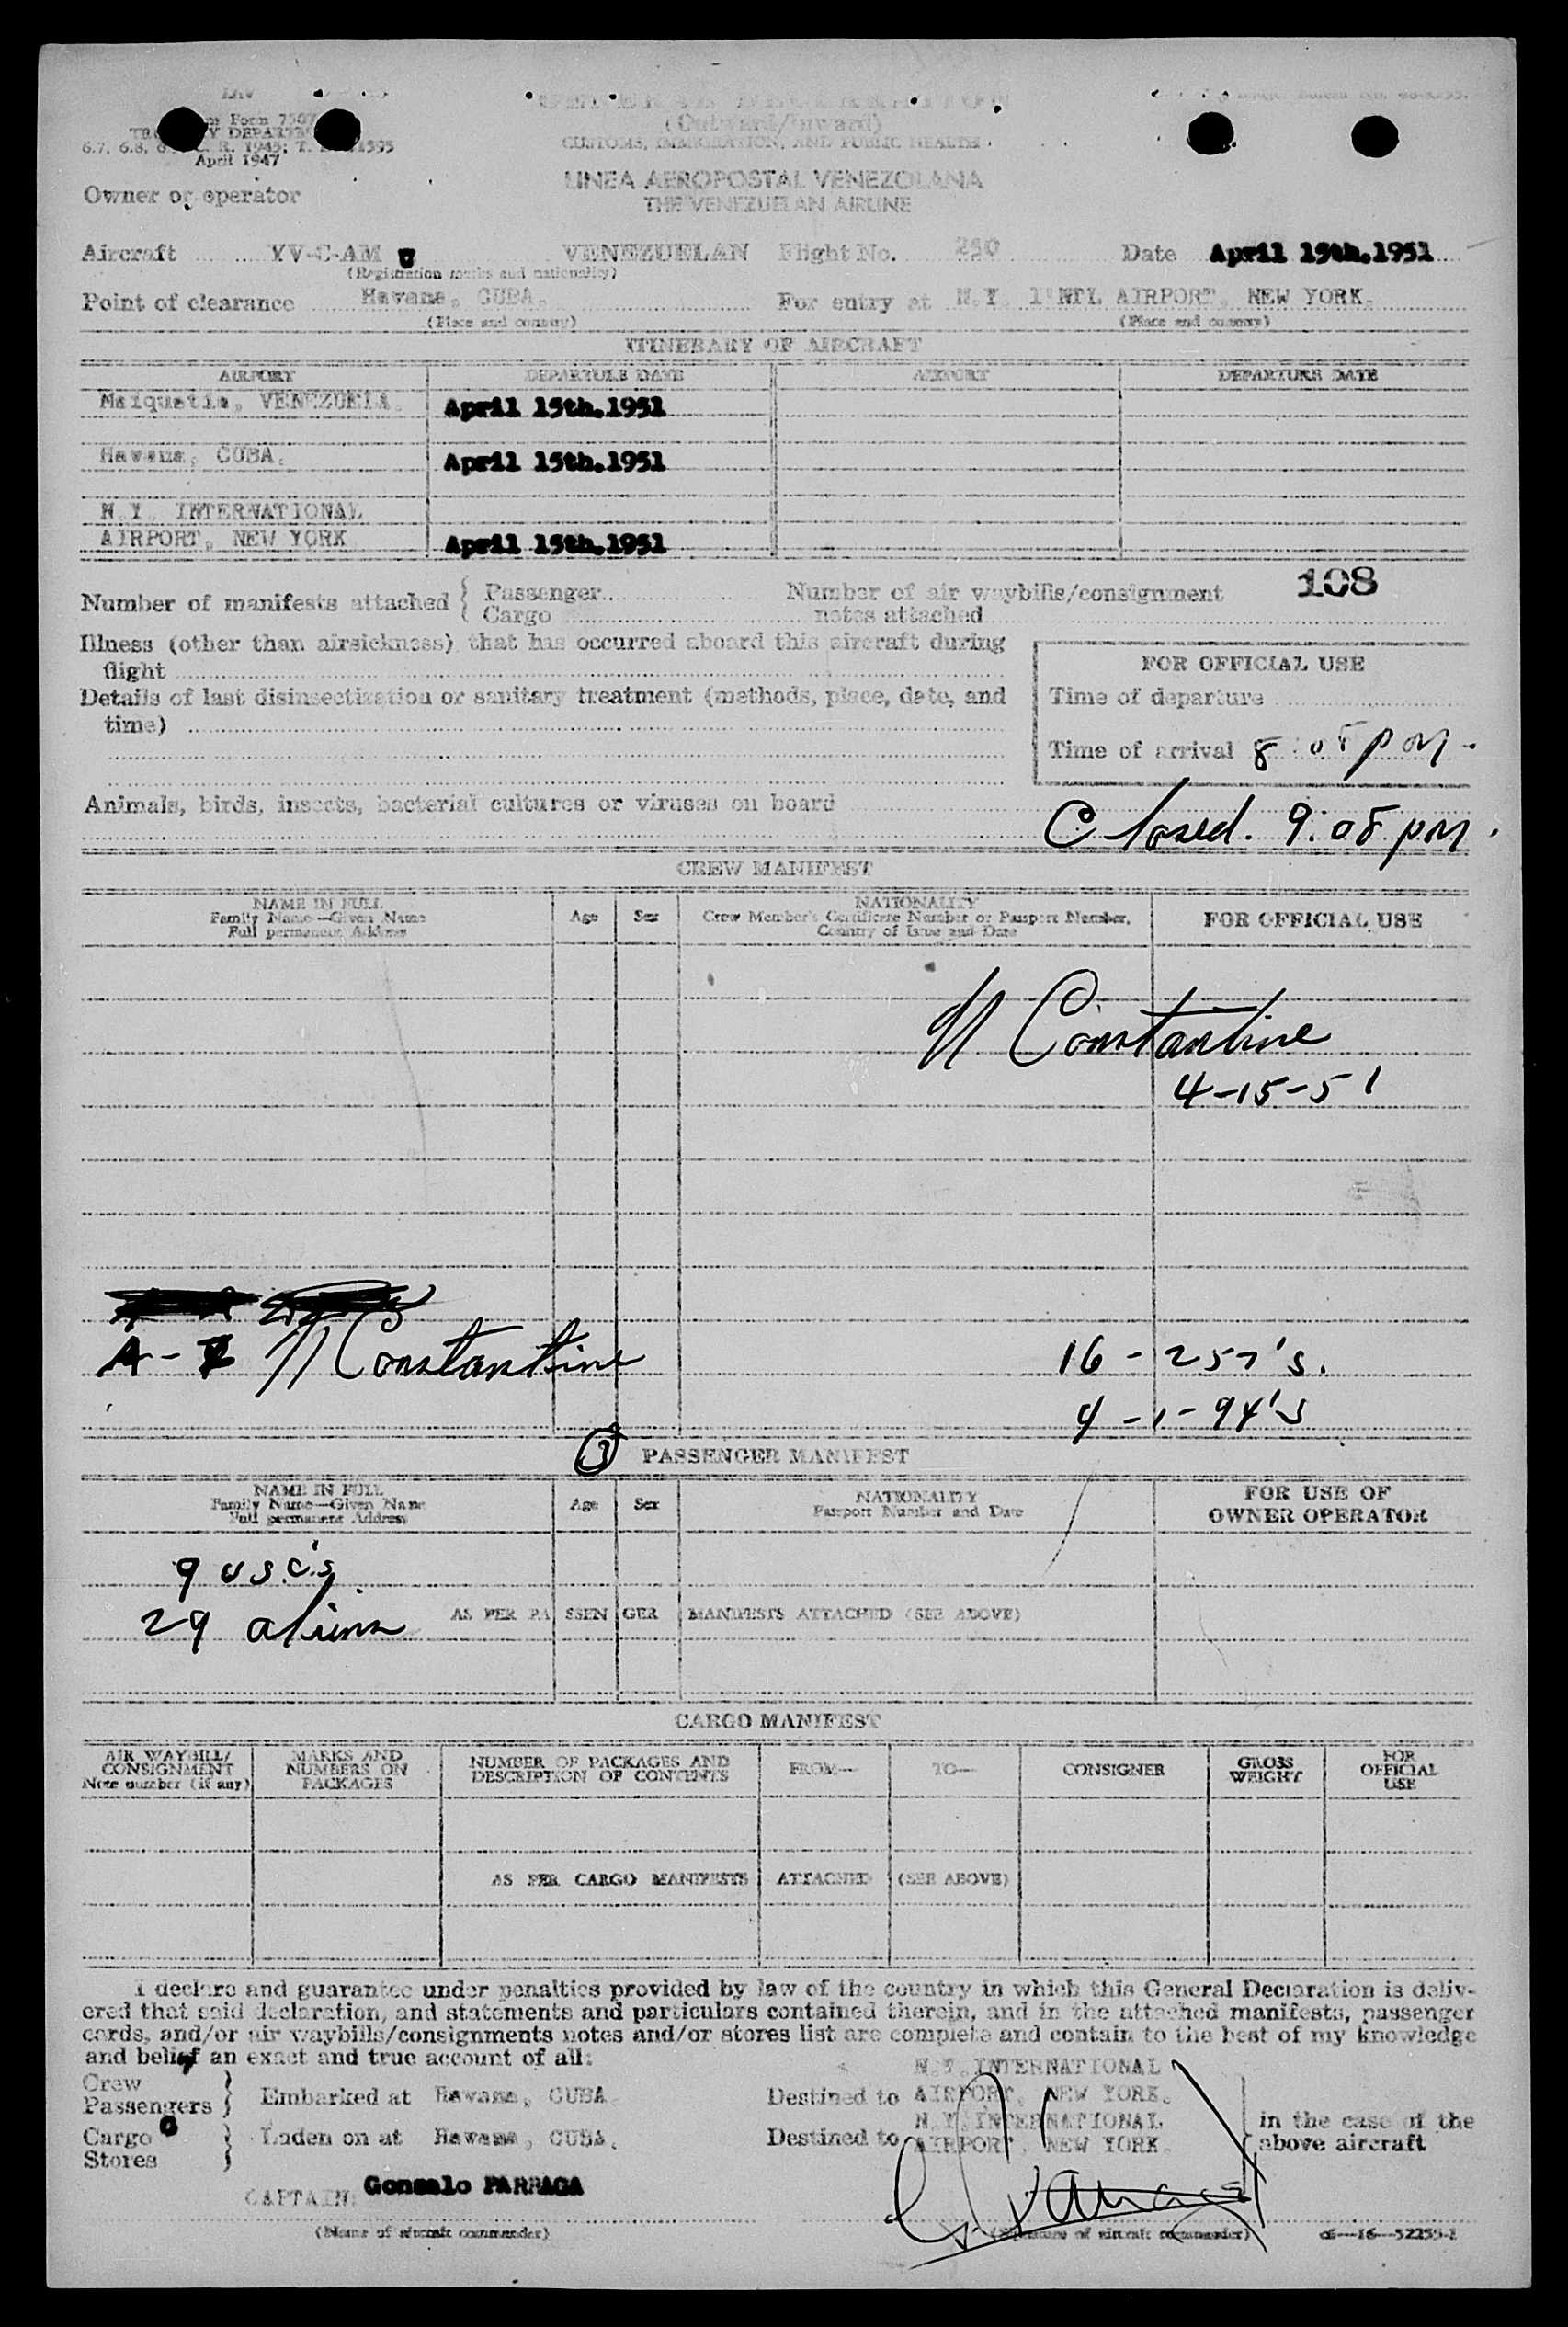 LAV
Form 7507
DEPARTMENT
6.7, 6.8, C. R. 1945; T. 1595
April 1947
(Outward/Inward)
CUSTOMS, IMMIGRATION, AND PUBLIC HEALTH
LINEA AEROPOSTAL VENEZOLANA
THE VENEZUELAN AIRLINE
Owner or operator
Aircraft YV-C-AM VENEZUELAN Flight No. 250 Date April 15th.1951
(Registration marks and nationality)
Point of clearance Havana, CUBA. For entry at N.Y. I'NTL AIRPORT, NEW YORK.
(Place and country) (Place and country)
ITINERARY OF AIRCRAFT
AIRPORT DEPARTURE DATE AIRPORT DEPARTURE DATE
Maiquetia, VENEZUELA. April 15th.1951
Havana, CUBA. April 15th.1951
N.Y. INTERNATIONAL
AIRPORT, NEW YORK April 15th.1951
Number of manifests attached { Passenger Number of air waybills/consignment 108
Cargo notes attached
Illness (other than airsickness) that has occurred aboard this aircraft during
flight
FOR OFFICIAL USE
Details of last disinsectization or sanitary treatment (methods, place, date, and
time)
Time of departure
Time of arrival 8:05 pm.
Animals, birds, insects, bacterial cultures or viruses on board
Closed. 9:05 pm.
CREW MANIFEST
NAME IN FULL
Family Name—Given Name
Full permanent Address
Age Sex
NATIONALITY
Crew Member's Certificate Number or Passport Number,
Country of Issue and Date
FOR OFFICIAL USE
N Constantine
4-15-51
N Constantine
16 - 257's.
4 - 1-94's
3 PASSENGER MANIFEST
NAME IN FULL
Family Name—Given Name
Full permanent Address
Age Sex
NATIONALITY
Passport Number and Date
FOR USE OF
OWNER OPERATOR
9 USC's
29 aliens AS PER PASSENGER MANIFESTS ATTACHED (SEE ABOVE)
CARGO MANIFEST
AIR WAYBILL/
CONSIGNMENT
Note number (if any)
MARKS AND
NUMBERS ON
PACKAGES
NUMBER OF PACKAGES AND
DESCRIPTION OF CONTENTS
FROM— TO— CONSIGNER
GROSS
WEIGHT
FOR
OFFICIAL
USE
AS PER CARGO MANIFESTS ATTACHED (SEE ABOVE)
I declare and guarantee under penalties provided by law of the country in which this General Declaration is deliv-
ered that said declaration, and statements and particulars contained therein, and in the attached manifests, passenger
cards, and/or air waybills/consignments notes and/or stores list are complete and contain to the best of my knowledge
and belief an exact and true account of all:
Crew
Passengers } Embarked at Havana, CUBA. Destined to N.Y. INTERNATIONAL
AIRPORT, NEW YORK.
Cargo
Stores } Laden on at Havana, CUBA. Destined to N.Y. INTERNATIONAL
AIRPORT, NEW YORK.
in the case of the
above aircraft
CAPTAIN: Gonzalo PARRAGA
G. Parraga
(Name of aircraft commander) (Signature of aircraft commander) c6—16—52255-1